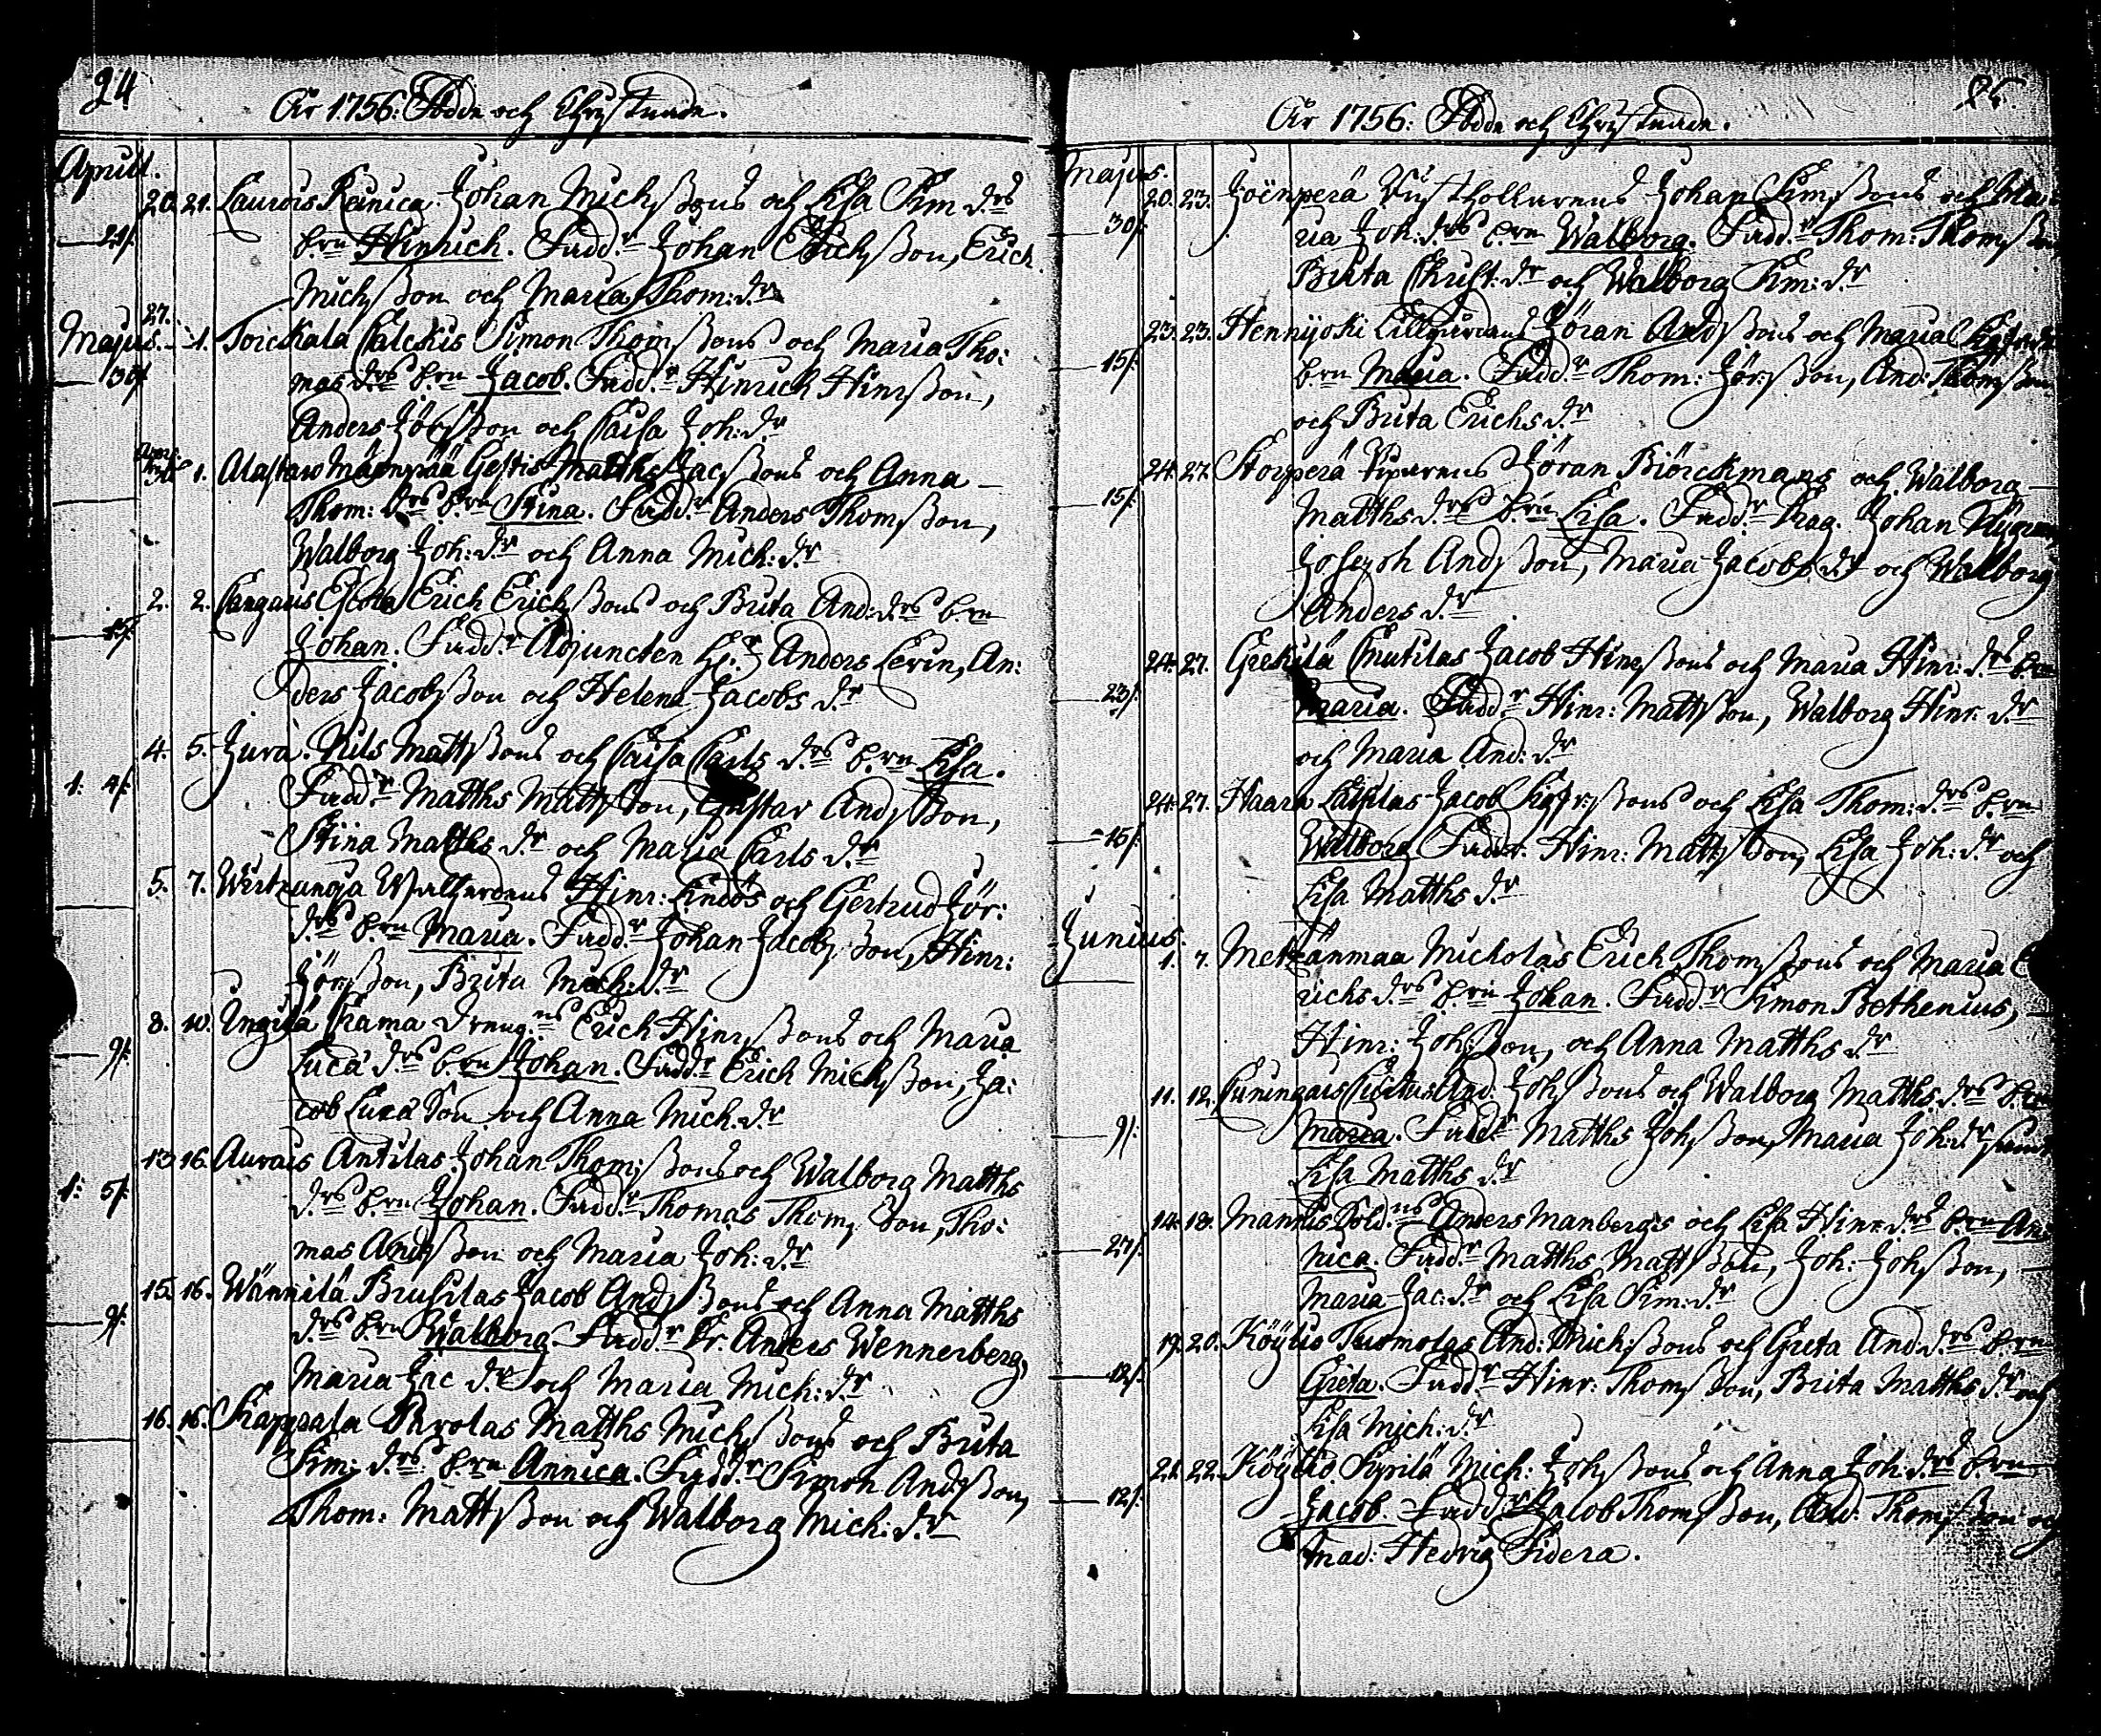 24
År 1756: Födde och Chrystnade.
Aprill.
20. 21. Lauvois Reinica Johan Michssons och Lisa Sim d.rs
21/: b.rn Hinrich. Fadd.r Johan Erichsson, Erich
Michsson och Maria Thom: d.r
27.
Majus. 1. Torckala Calckis Simon Thomssons och Maria Tho:
30/: mas d.rs b.rn Jacob. Fadd.r Hinrich Hinrsson,
Anders Jörsson och Caisa Joh: d.r
30 1. Alastaro Mäenpää Gestis Matths Jacssons och Anna
Thom: d.rs b.rn Stina. Fadd.r Anders Thomsson,
Walborg Joh: d.r och Anna Mich: d.r
2. 2. Cangais Eskola Erich Erichssons och Brita And: d.rs b.rn
Johan. Fadd.r Adjuncten H.r Anders Levin, An:
ders Jacobsson och Helena Jacobs d.r
4. 5. Juva. Nils Mattssons och Caisa Carls d.rs b.rn Lisa.
1: 4/: Fadd.r Matths Mattsson, Gustav Andsson,
Stina Matths d.r och Maria Carls d.r
5. 7. Wirtzanoja Hinr: Lindös och Gertrud Jör:
d.rs b.rn Maria. Fadd.r Johan Jacobsson, Hinr:
Jörsson, Brita Mich: d.r
8. 10. Ungilä Krama dreng.ns Erich Hinrssons och Maria
9/: Luca d.rs b.rn Johan. Fadd.r Erich Michsson, Ja:
cob Luca Son och Anna Mich: d.r
13. 16. Auvais Antilas Johan Thomssons och Walborg Matths
1: 5/: d.rs b.rn Johan. Fadd.r Thomas Thomsson, Tho:
mas Andsson och Maria Joh: d.r
15. 16. Wännilä Brusilas Jacob Andssons och Anna Matths
9/: d.rs b.rn Walborg. Fadd.r Hr. Anders Wennerberg,
Maria Jac d.r och Maria Mich: d.r
16. 16. Kappala Pavolas Matths Michssons och Brita
Sim: d.rs b.rn Annica. Fadd.r Simon Andsson,
Thom: Mattsson och Walborg Mich: d.r
25.
År 1756: Födde och Chrystnade.
Majus.
20. 23. Joenperä Rusthollarens Johan Simssons och Ma:
30/: ria Joh: d.rs b.rn Walborg. Fadd.r Thom: Thomsson
Brita Christ: d.r och Walborg Sim: d.r
23. 23. Hennijoki Lillgårdens Jöran Andssons och Maria
15/: b.rn Maria. Fadd.r Thom: Jörsson, And: Thomsson
och Brita Erichs d.r
24. 27. Storperä Jöran Biörckmans och Walborg
15/: Matths d.rs b.rn Lisa. Fadd.r Johan
Joseph Andsson, Maria Jacobs d.r och Walborg
Anders d.r
24. 27. Grekilä Knutilas Jacob Hinrssons och Maria Hinr: d.rs b.rn
23/: Maria. Fadd.r Hinr: Mattsson, Walborg Hinr: d.r
och Maria And: d.r
24. 27. Haara Lassilas Jacob Sigfrssons och Lisa Thom: d.rs b.rn
15/: Walborg. Fadd.r Hinr: Mattsson, Lisa Joh: d.r och
Lisa Matths d.r
Junius.
1. 7. Metzänmaa Micholas Erich Thomssons och Maria E
richs d.rs b.rn Johan. Fadd.r Simon Bethenius,
Hinr: Johsson, och Anna Matths d.r
11. 12. And: Johssons och Walborg Matths d.rs b.rn
9/: Maria. Fadd.r Matths Johsson, Maria Joh: d.r samt
Lisa Matths d.r
14. 18. Mannis Sold.ns Anders Manbergs och Lisa Hinr d.rs b.rn An:
27/: nica. Fadd.r Matths Mattsson, Joh: Johsson,
Maria Jac: d.r och Lisa Sim: d.r
19. 20. Köylio Tuomolas And: Michssons och Greta And: d.rs b.rn
12/: Greta. Fadd.r Hinr: Thomsson, Brita Matths d.r och
Lisa Mich: d.r
21. 22. Köylio Sipilä Mich: Johssons och Anna Joh: d.rs b.rn
12/: Jacob. Fadd.r Jacob Thomsson, And: Thomsson och
Mad: Hedvig Sidera.